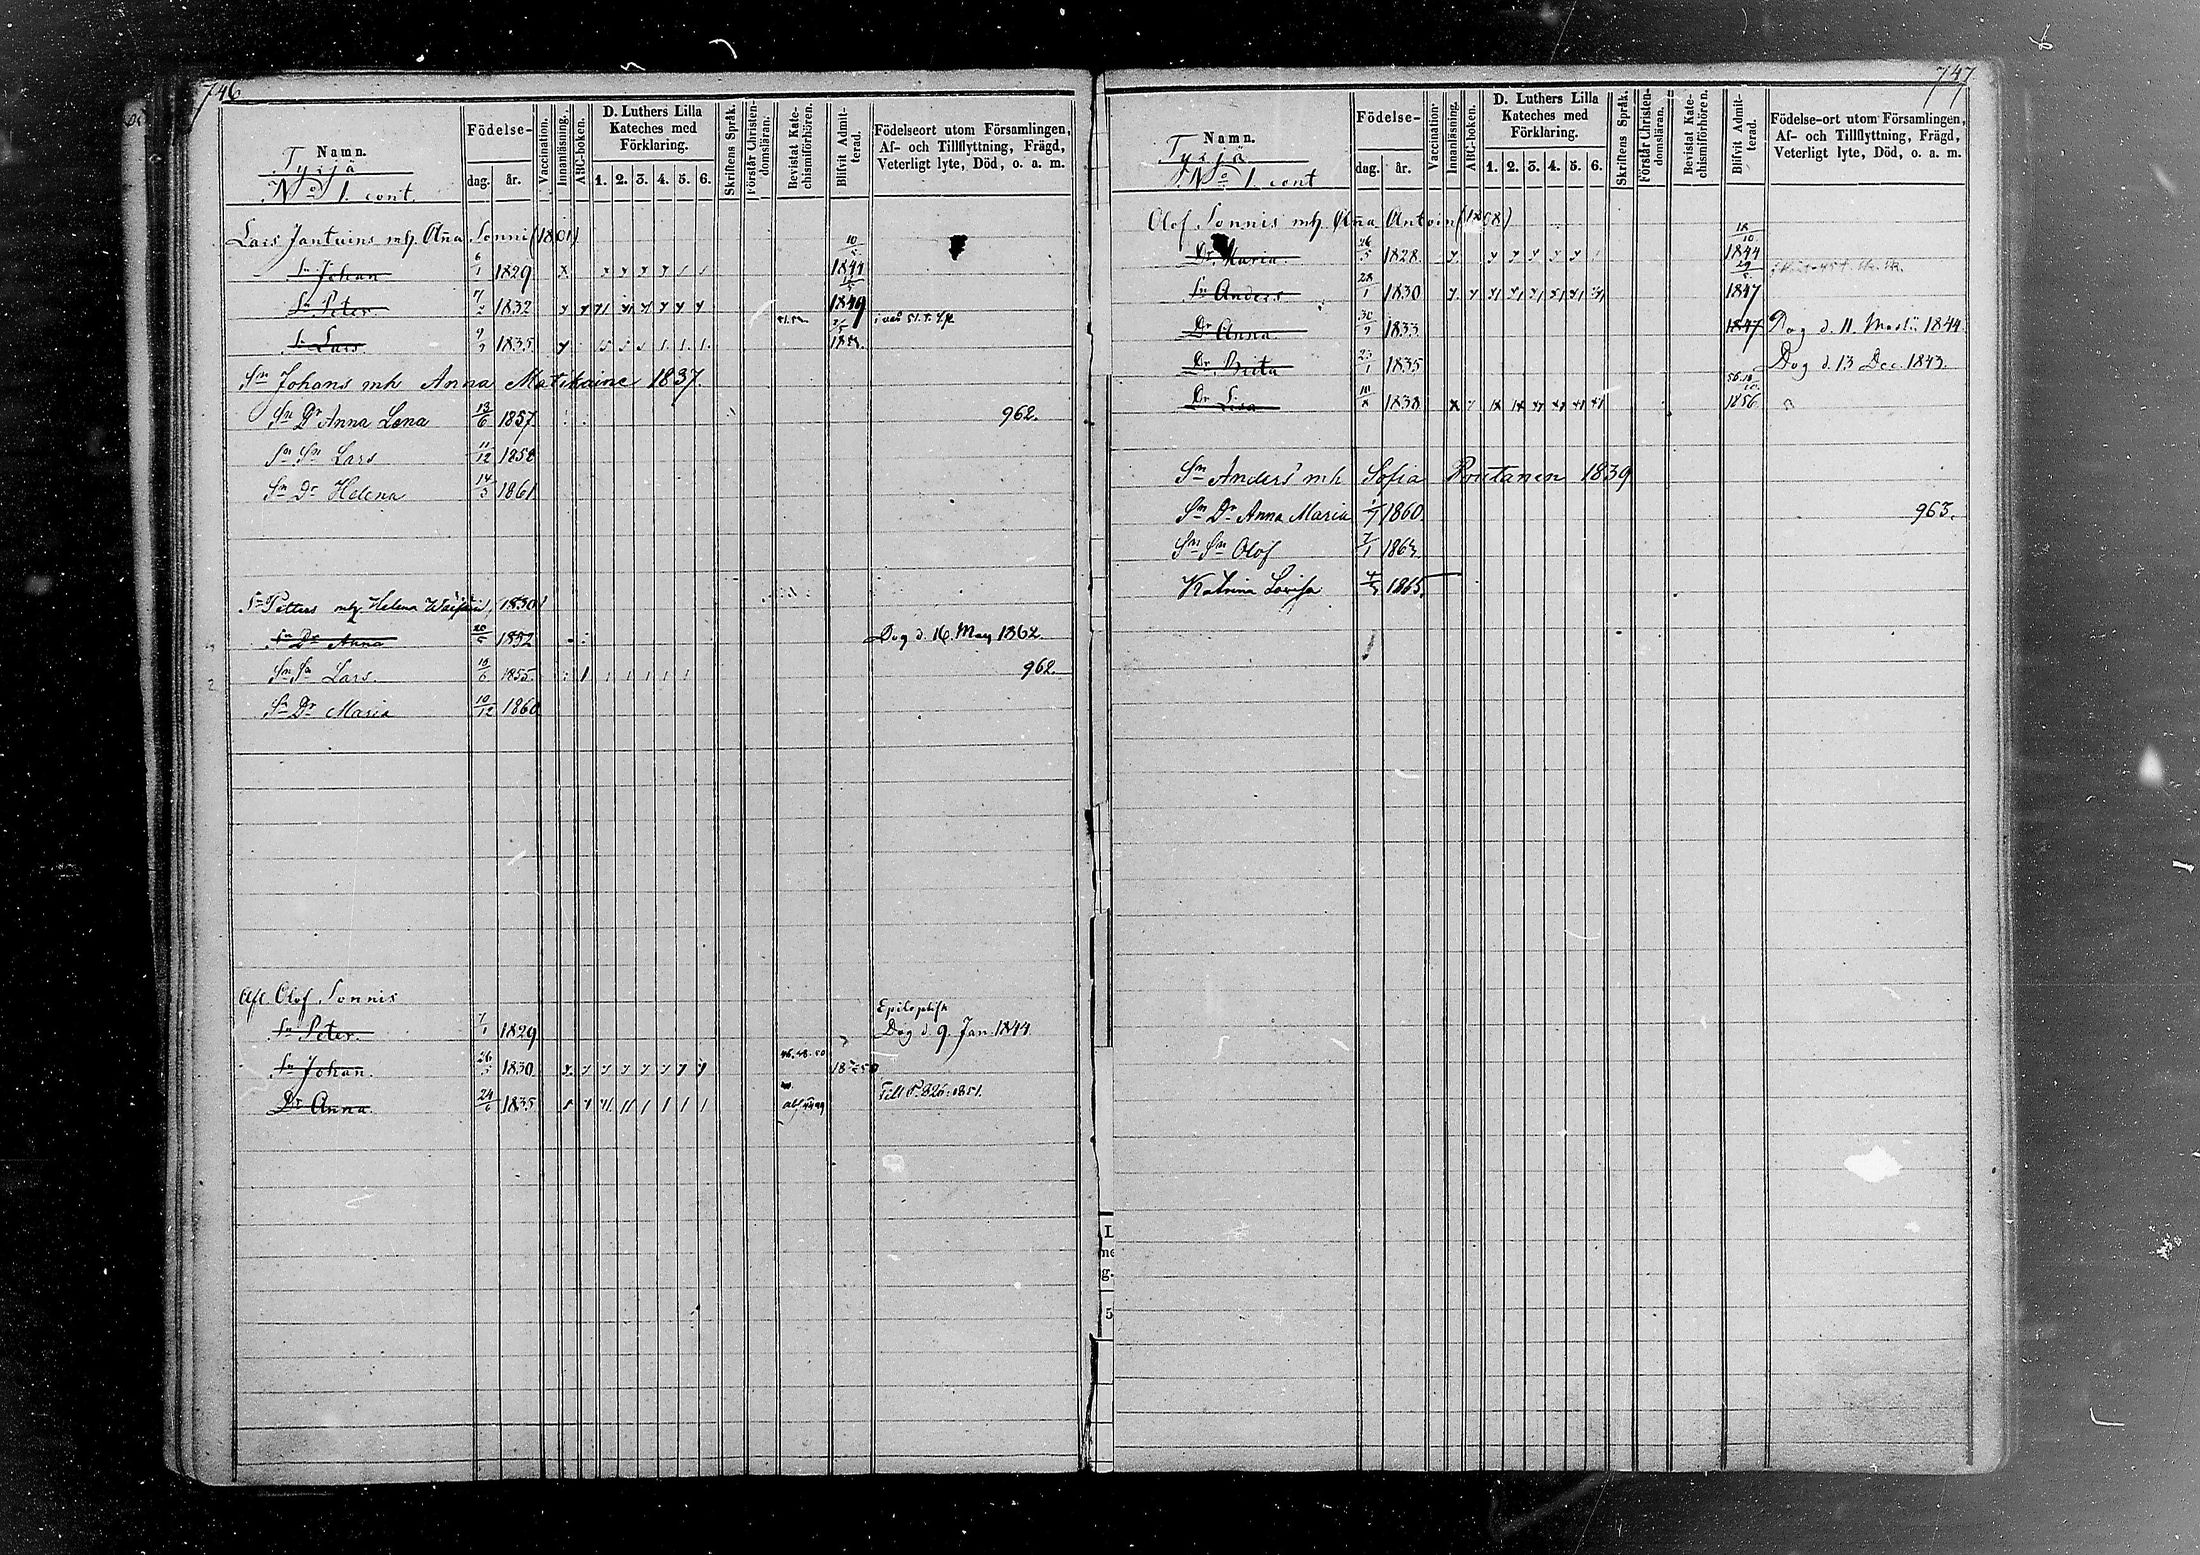 746
Namn. Födelse- dag. år. Vaccination. Innanläsning. ABC-boken. D. Luthers Lilla Kateches med Förklaring. 1. 2. 3. 4. 5. 6. Skriftens Språk. Förstår Christendomsläran. Bevistat Katechismiförhören. Blifvit Admitterad. Födelseort utom Församlingen, Af- och Tillflyttning, Frägd, Veterligt lyte, Död, o. a. m.
Tyrjä
No 1. cont.
Lars Jantuins mh. Aña Sonni (1801)
Sn Johan 6/1 1829 1844
Sn Peter 7/2 1832 1849
Sn Lars 1835
Sn Johans mh Anna Matikaine 1837.
Sn Dr Anna Lena 13/6 1857. 962.
Sn Sn Lars 11/12 1858
Sn Dr Helena 14/3 1861
Sn Petters mh. Helena 1830
Sn Dr Anna 20/5 1852 Dog d. 16. May 1862.
Sn Sn Lars. 18/6 1855. 962.
Sn Dr Maria 10/12 1860
Afl. Olof Sonnis
Epileptisk
Sn Peter 1/1 1829 Dog d. 9 Jan. 1844.
Sn Johan. 26/3 1830 46. 48. 50
Dr Anna. 24/6 1835 Till P. 826: 1851.
747
Namn. Födelse- dag. år. Vaccination. Innanläsning. ABC-boken. D. Luthers Lilla Kateches med Förklaring. 1. 2. 3. 4. 5. 6. Skriftens Språk. Förstår Christendomsläran. Bevistat Katechismiförhören. Blifvit Admitterad. Födelse-ort utom Församlingen, Af- och Tillflyttning, Frägd, Veterligt lyte, Död, o. a. m.
Tyrjä
No 1. cont
Olof Sonnis mh. Aña Antoin (1808)
Dr. Maria 26/5 1828 18/10 1844
Sn Anders 28/1 1830 1847
Dr Anna 30/9 1833 1847 Dog d. 11. Martii 1844
Dr Brita 23/1 1835 Dog d. 13 Dec. 1843.
Dr Lisa 10/8 1838 1856
Sn Anders mh Sofia Poutanen 1839
Sn Dr Anna Maria 1860 963.
Sn Sn Olof 7/1 1863
Katrina Lovisa 1865.